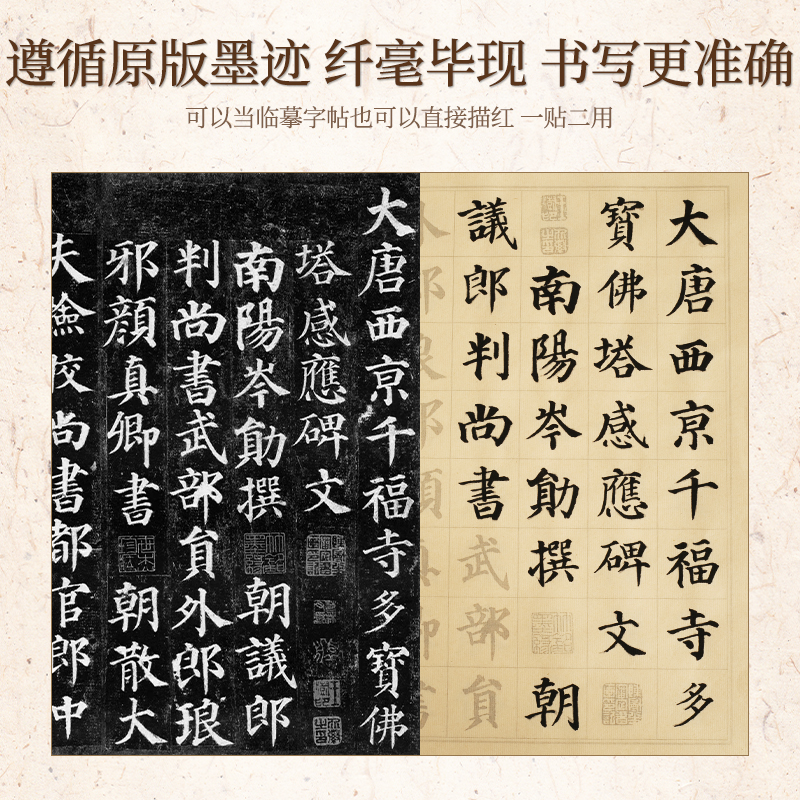 遵循原版墨迹 纤毫毕现 书写更准确
可以当临摹字帖也可以直接描红 一贴二用
大唐西京千福寺多
寶佛塔感應碑文
南陽岑勛撰 朝
議郎判尚書武部員
大唐西京千福寺多寶佛
塔感應碑文
南陽岑勛撰 朝議郎
判尚書武部員外郎琅
邪顏真卿書 朝散大
夫檢校尚書都官郎中